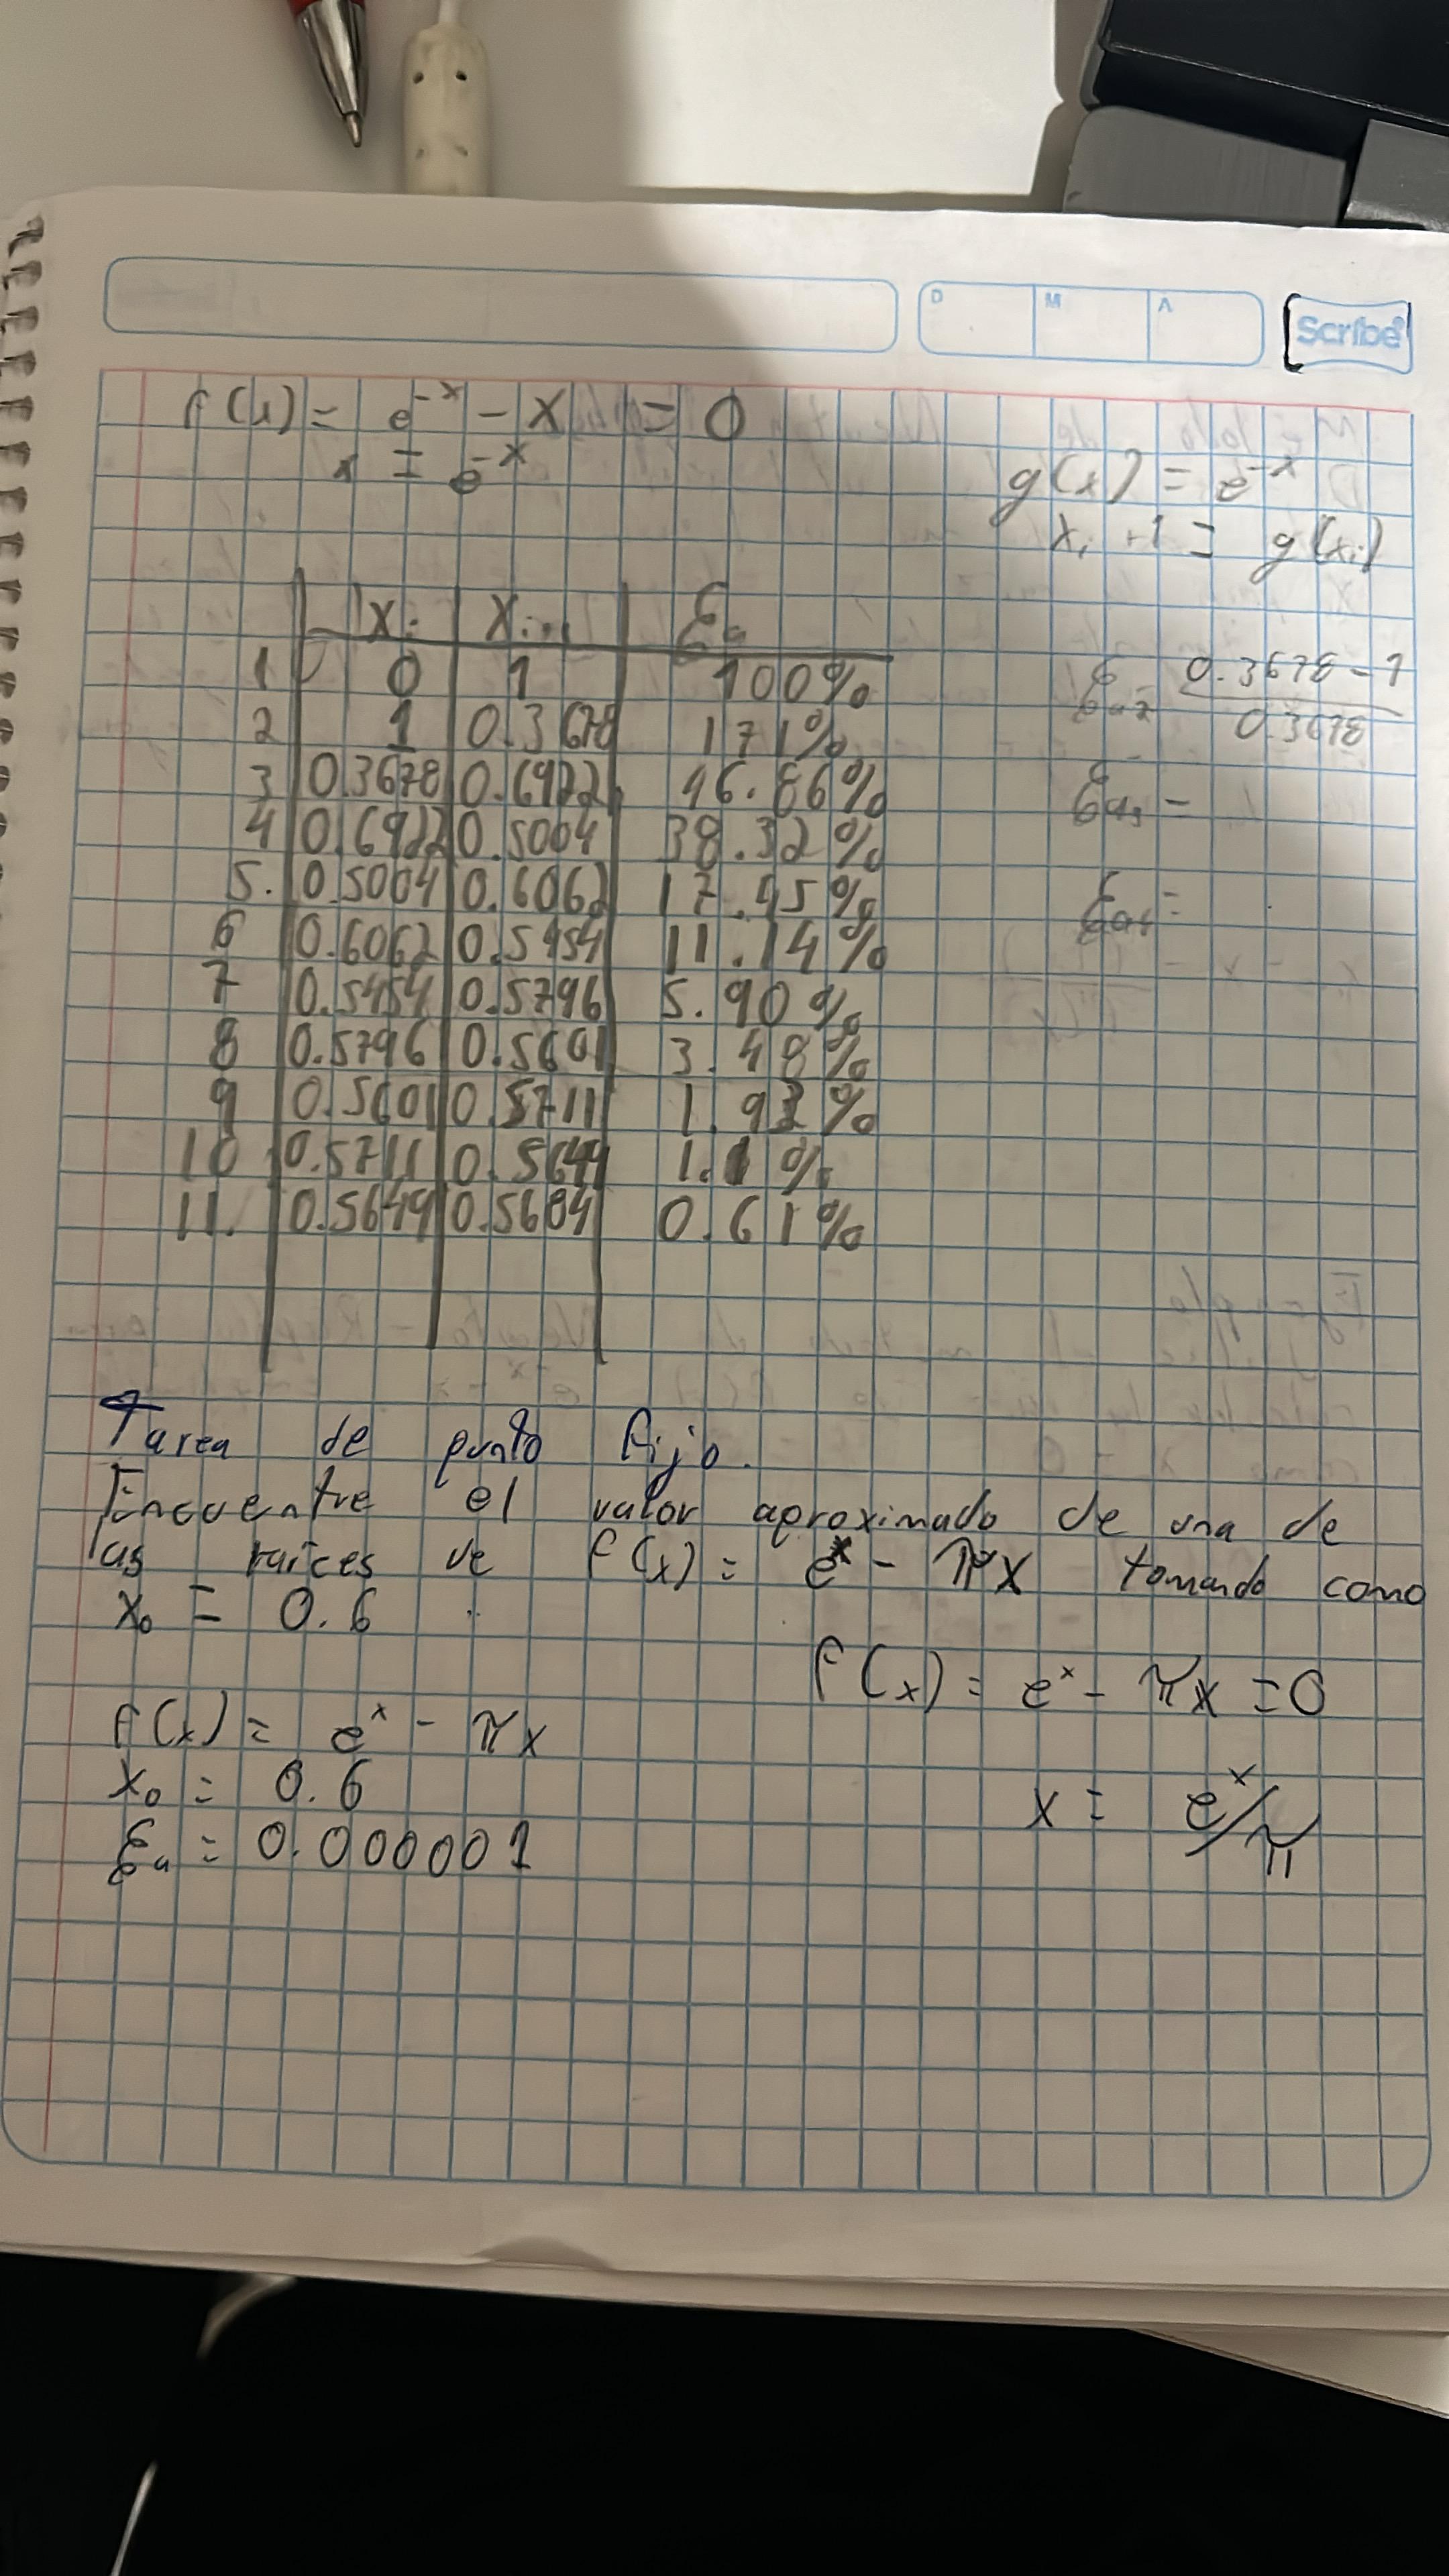 D M A
Scribe
f(x) = e^-x - x = 0
x = e^-x
g(x) = e^-x
xi+1 = g(xi)
xi xi+1 Ea
1 0 1 100%
2 1 0.3678 171%
3 0.3678 0.6922 46.86%
4 0.6922 0.5004 38.32%
5. 0.5004 0.6062 17.45%
6 0.6062 0.5454 11.14%
7 0.5454 0.5796 5.90%
8 0.5796 0.5601 3.48%
9 0.5601 0.5711 1.92%
10 0.5711 0.5649 1.1%
11. 0.5649 0.5684 0.61%
Ea2 = 0.3678 - 1
0.3678
Ea3 =
Ea4 =
Tarea de punto fijo.
Encuentre el valor aproximado de una de
las raíces de f(x) = e^x - πx tomando como
x0 = 0.6
f(x) = e^x - πx = 0
f(x) = e^x - πx
x0 = 0.6
x = e^x/π
Ea = 0.000001